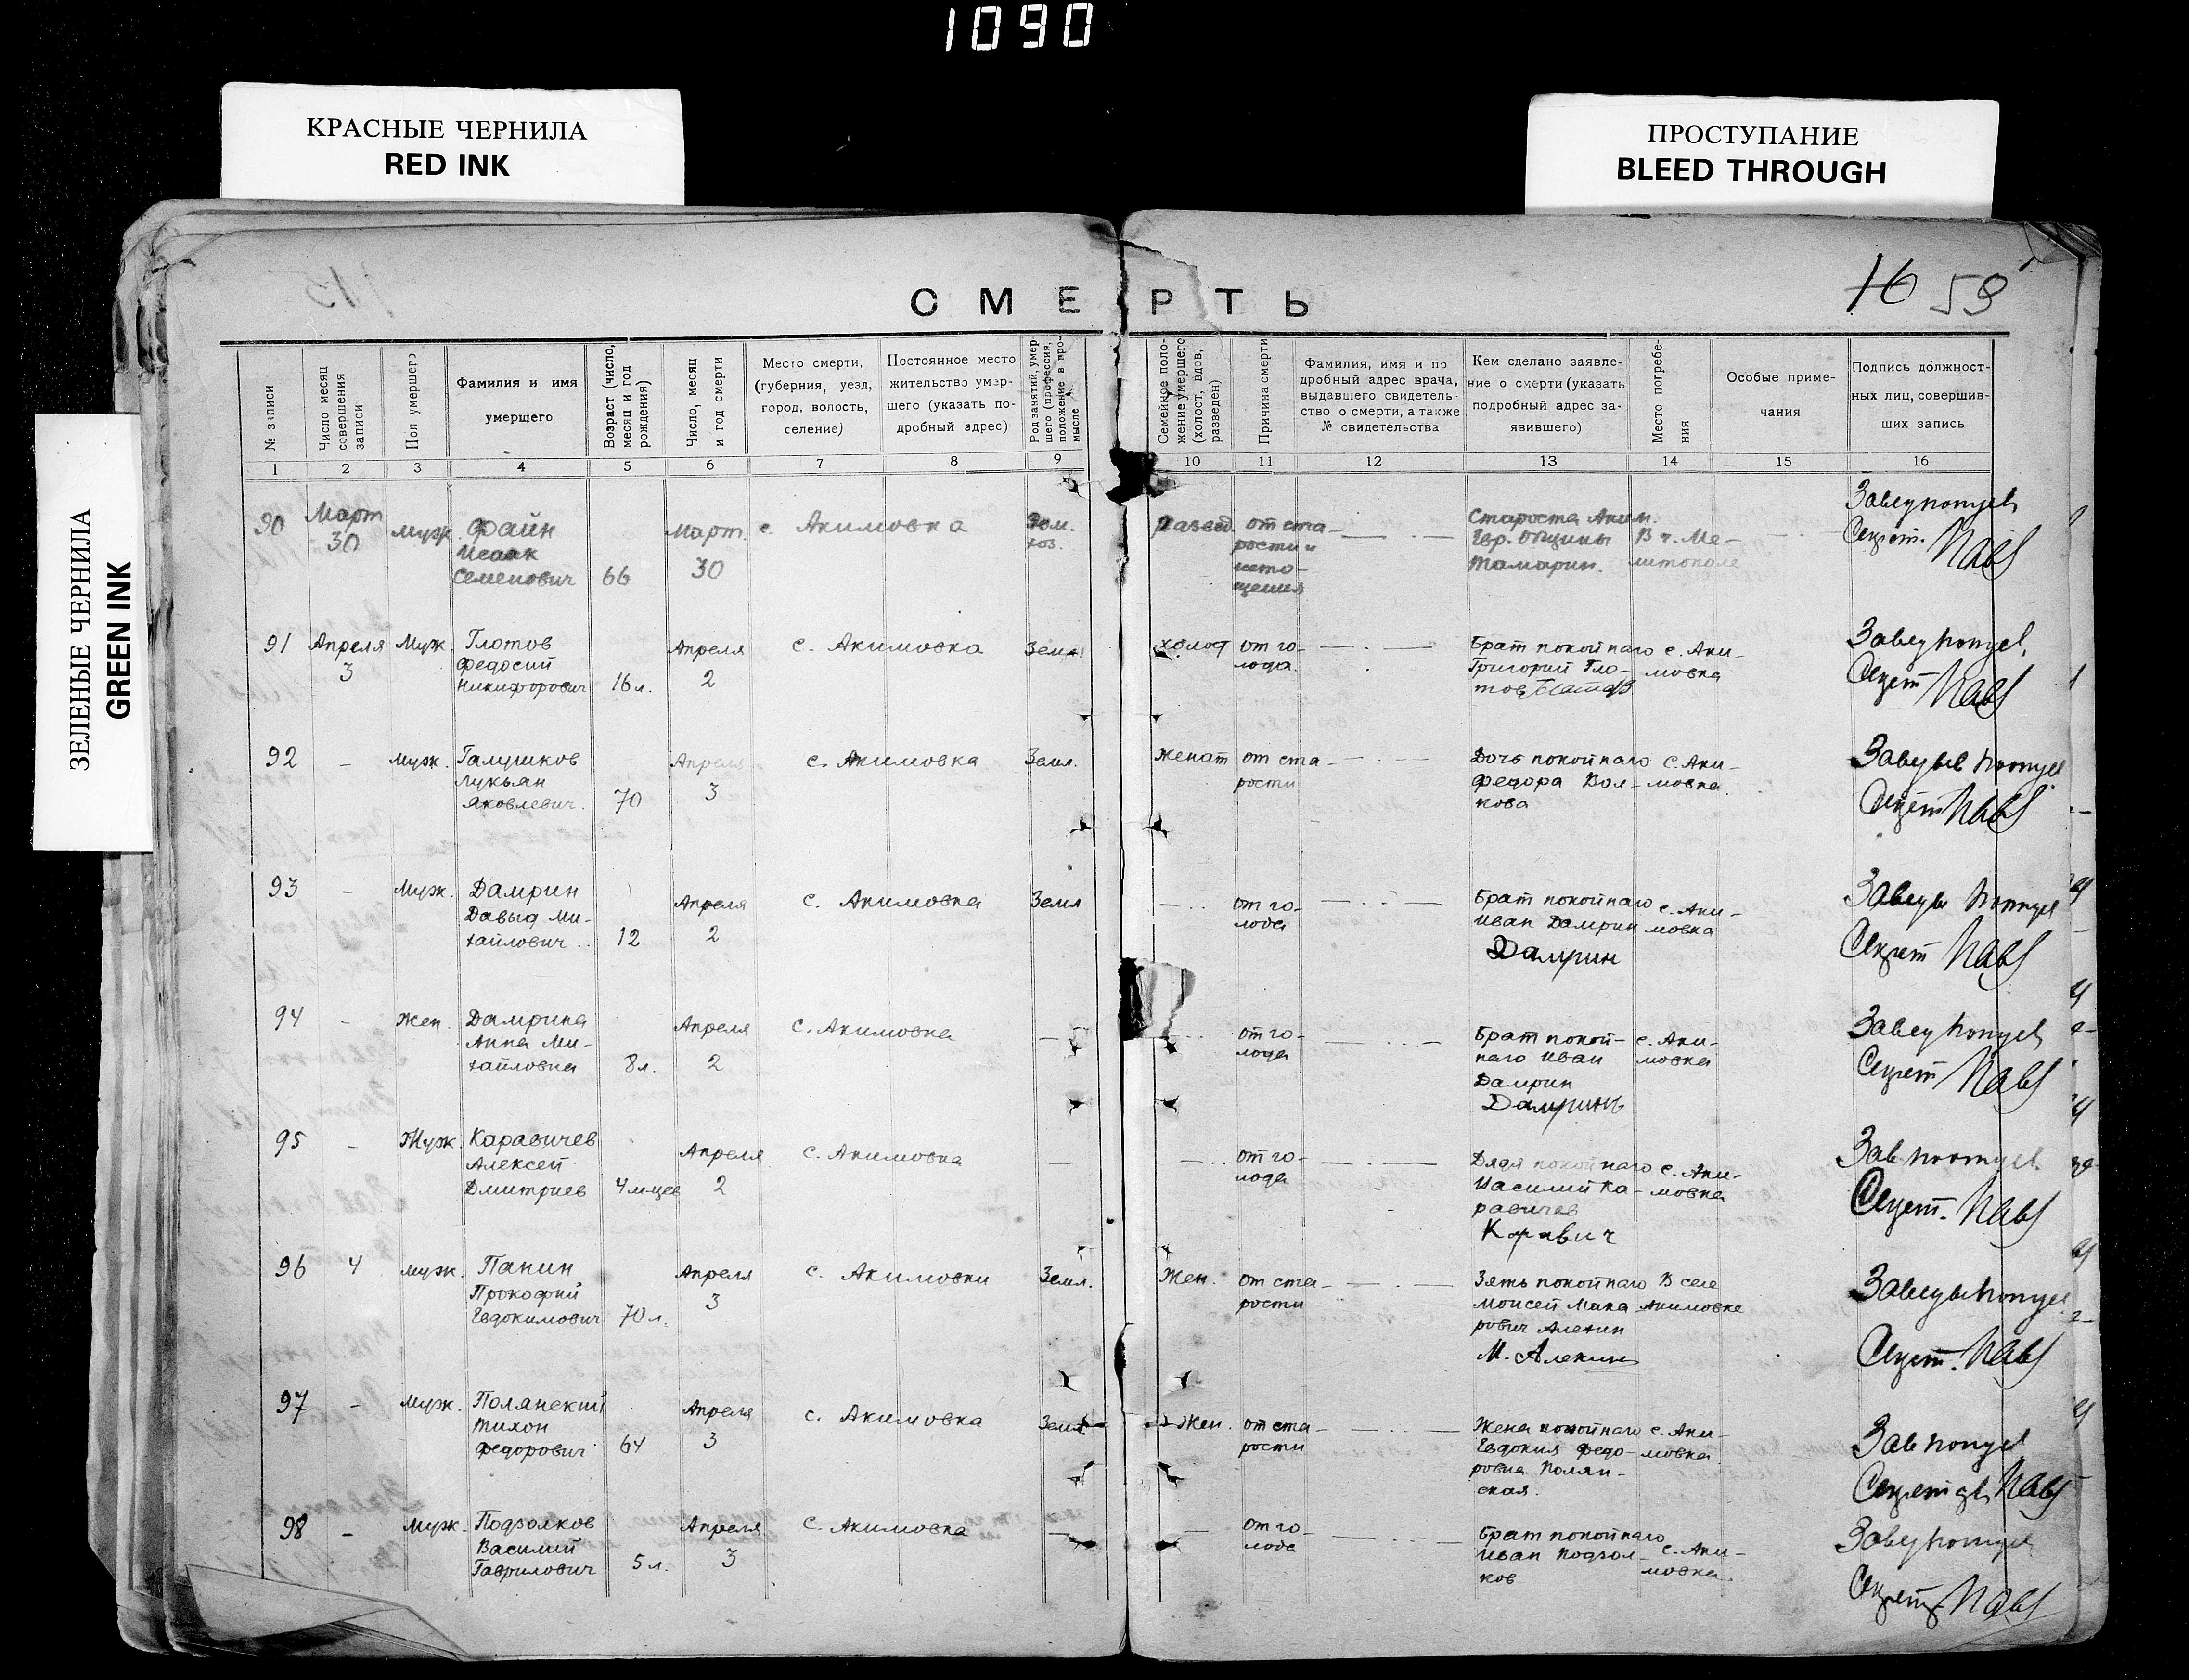 1090
КРАСНЫЕ ЧЕРНИЛА
RED INK
ПРОСТУПАНИЕ
BLEED THROUGH
ЗЕЛЕНЫЕ ЧЕРНИЛА
GREEN INK
16 59
СМЕРТЬ
№ записи
Число месяц
совершения
записи
Пол умершего
Фамилия и имя
умершего
Возраст (число,
месяц и год
рождения)
Число, месяц
и год смерти
Место смерти,
(губерния, уезд,
город, волость,
селение)
Постоянное место
жительство умер-
шего (указать по-
дробный адрес)
Род занятий, умер-
шего (профессия,
положение в про-
мысле
Семейное поло-
жение умершего
(холост, вдов,
разведен)
Причина смерти
Фамилия, имя и по
дробный адрес врача,
выдавшего свидетель-
ство о смерти, а также
№ свидетельства
Кем сделано заявле-
ние о смерти (указать
подробный адрес за-
явившего)
Место погребе-
ния
Особые приме-
чания
Подпись должност-
ных лиц, совершив-
ших запись
1 2 3 4 5 6 7 8 9 10 11 12 13 14 15 16
90 Март 30 муж. Файн
Исаак
Семенович 66 Март 30 с. Акимовка Дом.
хоз. развед. от ста-
рости и
исто-
щения Староста Аким.
Евр. Общины
Тамарин. В г. Ме-
литополе
Секрет.
91 Апреля 3 Муж. Глотов
Федосий
Никифорович 16 л. Апреля 2 с. Акимовка Земл. холост от го-
лода. Брат покойнаго
Григорий Гло-
тов с. Аки-
мовка
Секрет
92 – муж. Галушков
Лукьян
Яковлевич. 70 Апреля 3 с. Акимовка Земл. Женат от ста-
рости Дочь покойнаго
Федора Вол-
кова с. Аки-
мовка.
Секрет
93 – Муж. Дамрин
Давыд Ми-
хайлович 12 Апреля 2 с. Акимовка Земл от го-
лода Брат покойнаго
Иван Дамрин
Дамрин с. Аки-
мовка
Секрет
94 – Жен. Дамрина
Анна Ми-
хайловна 8 л. Апреля 2 с. Акимовка от го-
лода Брат покой-
наго Иван
Дамрин
Дамринъ с. Аки-
мовка
Секрет
95 – Муж Каравичев
Алексей
Дмитриев 4 м-цев Апреля 2 с. Акимовка от го-
лода Дядя покойнаго
Василий Ка-
равичев
Каравич с. Аки-
мовка
Секрет.
96 4 муж. Панин
Прокофий
Евдокимович 70 л. Апреля 3 с. Акимовки Земл. Жен. от ста-
рости Зять покойнаго
Моисей Мака
рович Алехин
М. Алехин В селе
Акимовке
Секрет.
97 – муж. Полянский
Тихон
Федорович 64 Апреля 3 с. Акимовка Земл Жен. от ста-
рости Жена покойнаго
Евдокия Федо-
ровна Полян-
ская. с. Аки-
мовка
98 – Муж. Подзолков
Василий
Гаврилович 5 л. Апреля 3 с. Акимовка от го-
лода Брат покойнаго
Иван Подзол-
ков с. Аки-
мовка.
Секрет